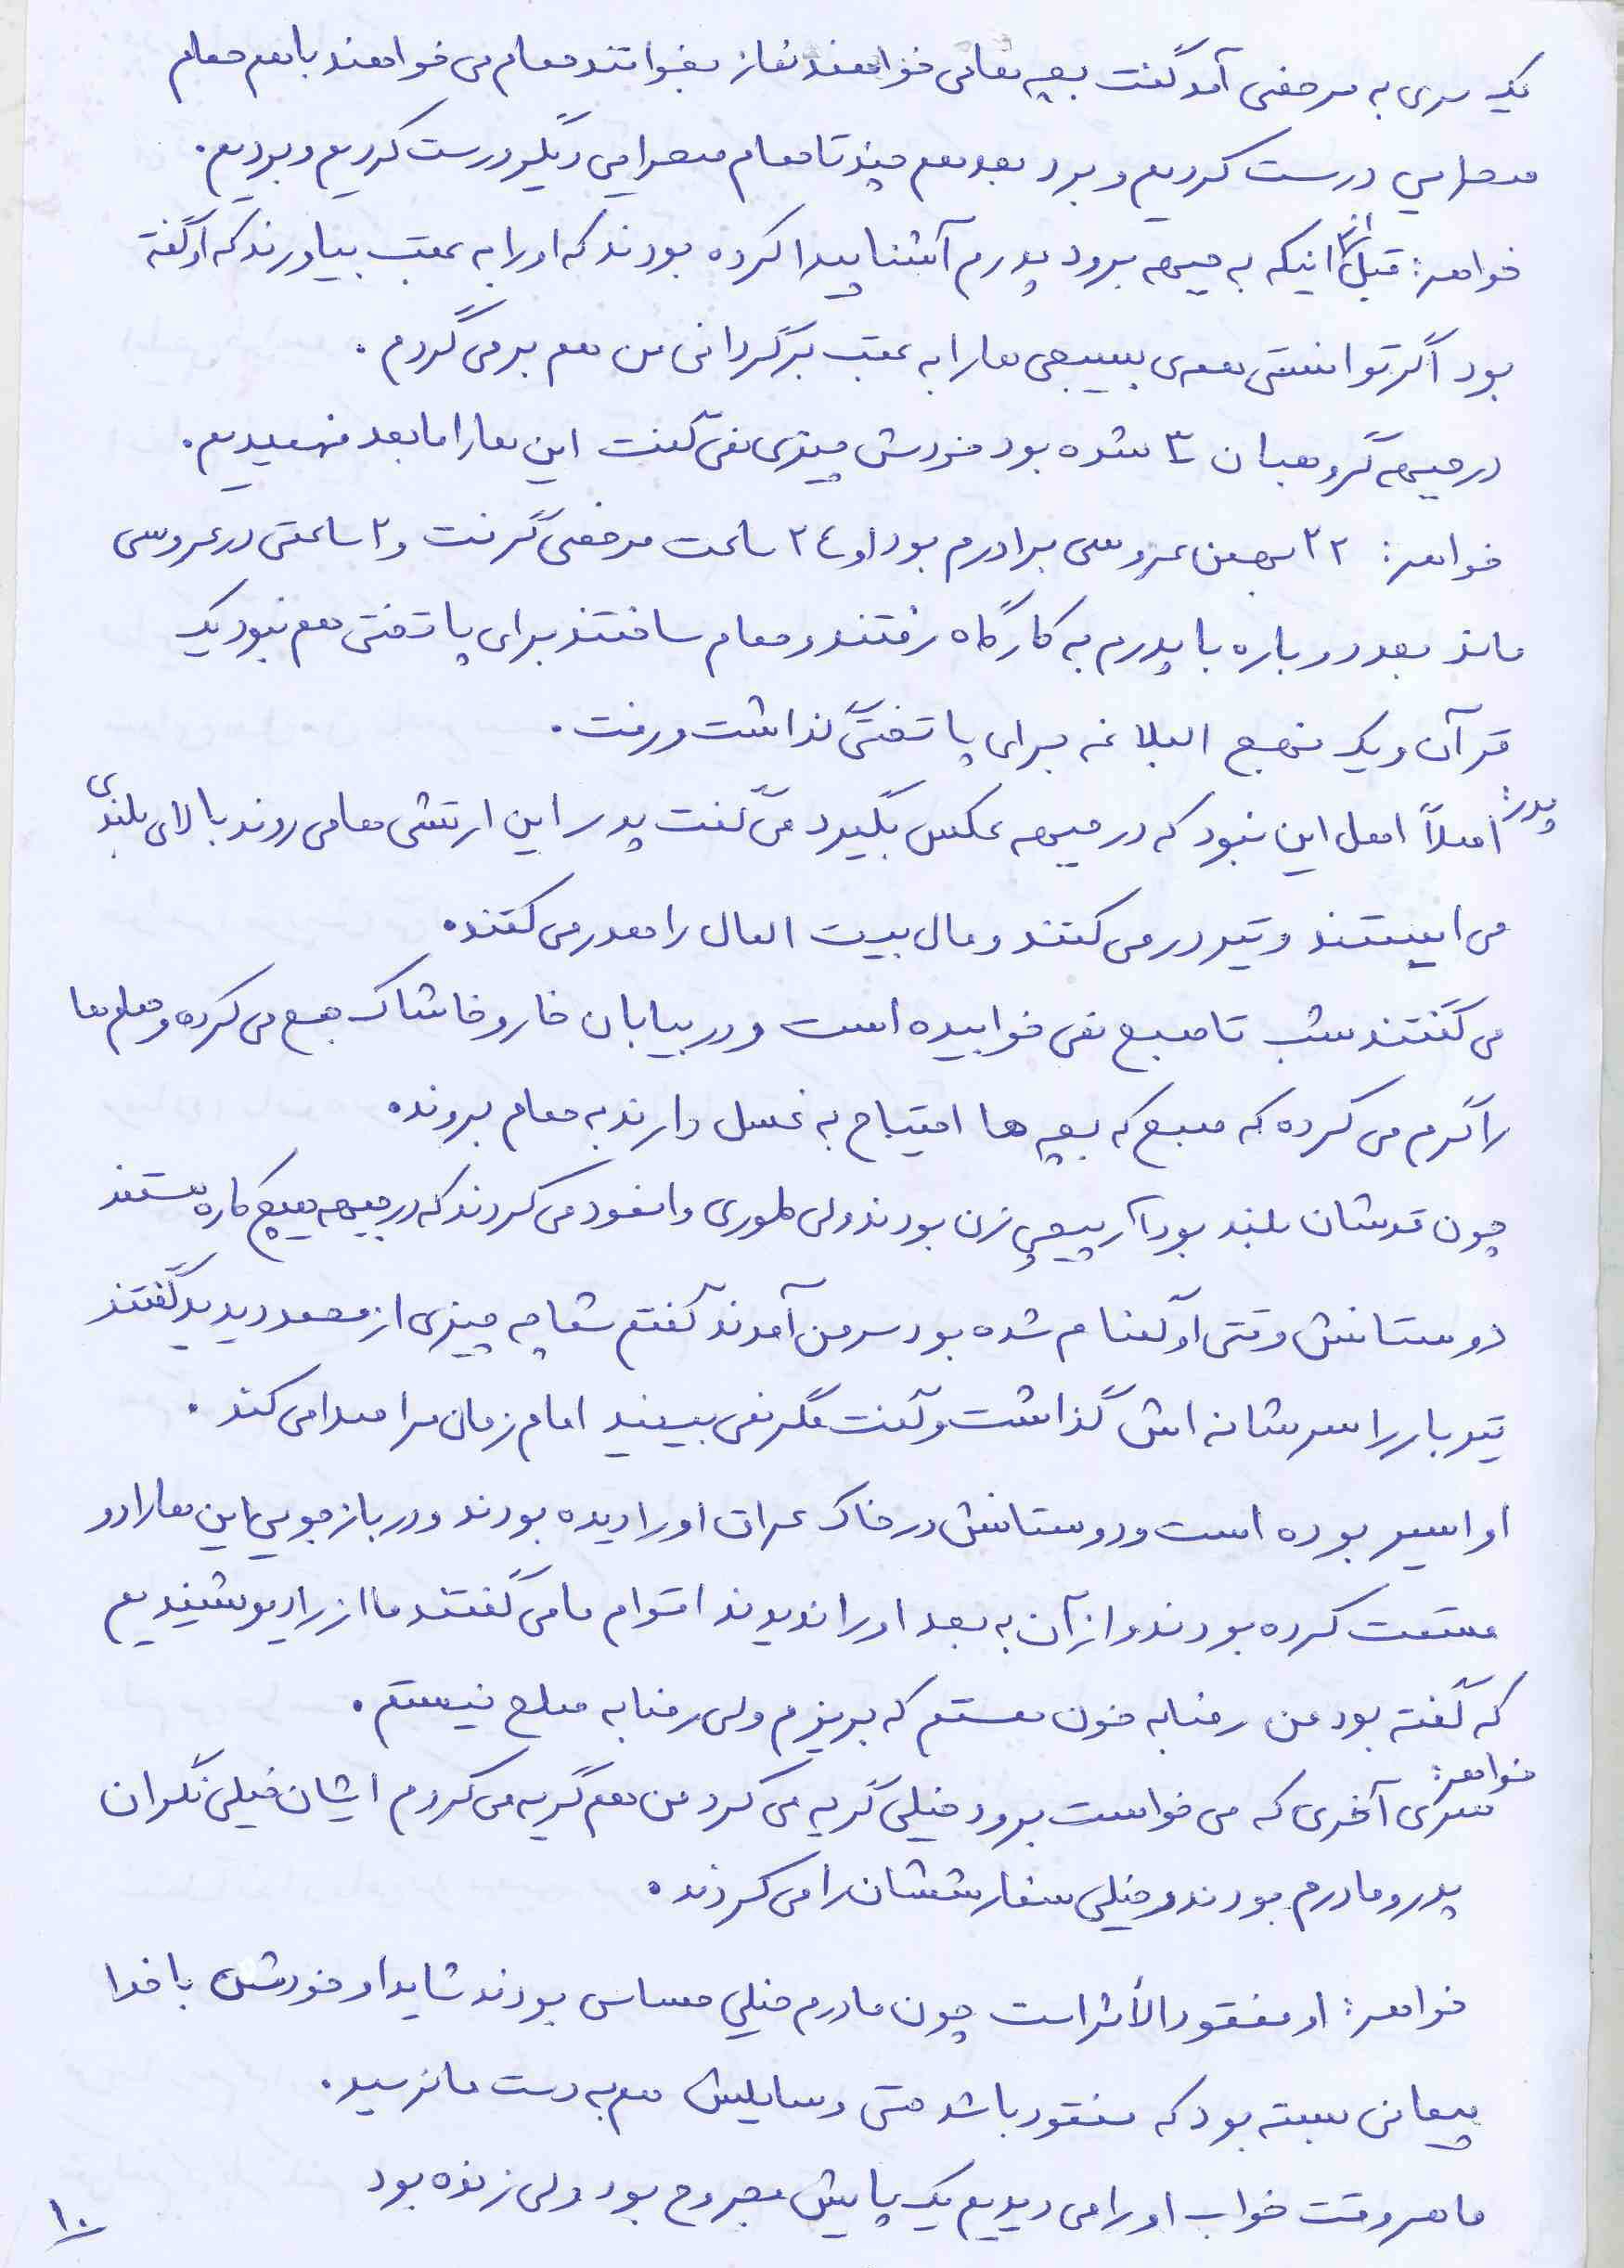 یک سری به مرخصی آمد گفت بچه ها می خواهند نماز بخوانند حمام می خواهند با هم حمام
صحرایی درست کردیم و برد بعد هم چند تا حمام صحرایی دیگر درست کردیم و بردیم.
خواهر: قبل از اینکه به جبهه برود پدرم آشنا پیدا کرده بودند که او را به عقب بیاورند که او گفته
بود اگر توانستی همه ی بسیجی ها را به عقب برگردانی من هم برمی گردم.
در جبهه گروهبان ۳ شده بود خودش چیزی نمی گفت این ها را ما بعد فهمیدیم.
خواهر: ۲۲ بهمن عروسی برادرم بود او ۲۴ ساعت مرخصی گرفت و ۲ ساعتی در عروسی
ماند بعد دوباره با پدرم به کارگاه رفتند و حمام ساختند برای پاتختی هم نبود یک
قرآن و یک نهج البلاغه برای پاتختی گذاشت و رفت.
پدر: اصلاً اهل این نبود که در جبهه عکس بگیرد می گفت پدر این ارتشی ها می روند بالای بلندی
می ایستند و تیر در می کنند و مال بیت المال را هدر می کنند.
می گفتند شب تا صبح نمی خوابیده است و در بیابان خار و خاشاک جمع می کرده و حمام ها
را گرم می کرده که صبح که بچه ها احتیاج به غسل دارند به حمام بروند.
چون قدشان بلند بود آرپیچی زن بودند ولی طوری وانمود می کردند که در جبهه هیچ کاره هستند
دوستانش وقتی او گمنام شده بود سر من آمدند گفتم شما چه چیزی از محمد دیدید گفتند
تیربار را سر شانه اش گذاشت و گفت مگر نمی بینید امام زمان مرا صدا می کند.
او اسیر بوده است و دوستانش در خاک عراق او را دیده بودند و در بازجویی این ها را دو
قسمت کرده بودند و از آن به بعد او را ندیدند اقوام ما می گفتند ما از رادیو شنیدیم
که گفته بود من رضا به خون هستم که بریزم ولی رضا به صلح نیستم.
خواهر: سری آخری که می خواست برود خیلی گریه می کرد من هم گریه می کردم ایشان خیلی نگران
پدر و مادرم بودند و خیلی سفارششان را می کردند.
خواهر: او مفقودالأثر است چون مادرم خیلی حساس بودند شاید او خودش با خدا
پیمانی بسته بود که مفقود باشد حتی وسایلش هم به دست ما نرسید.
ما هر وقت خواب او را می دیدیم یک پایش مجروح بود ولی زنده بود
۱۰